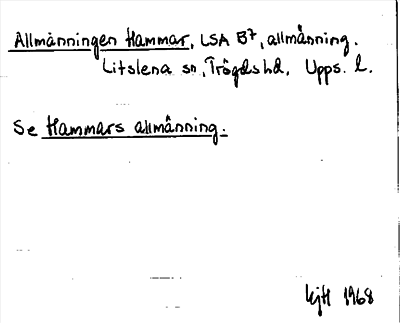 Allmänningen Hammar, LSA B7, allmänning.
Litslena sn, Trögds hd, Upps. l.
Se Hammars allmänning.
1968